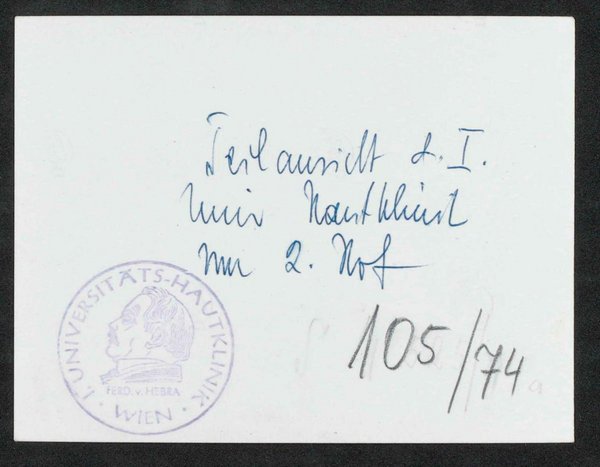 Teilansicht d. I.
Univ Hautklinik
2. Hof
105/74
I. UNIVERSITÄTS-HAUTKLINIK · WIEN ·
FERD. v. HEBRA